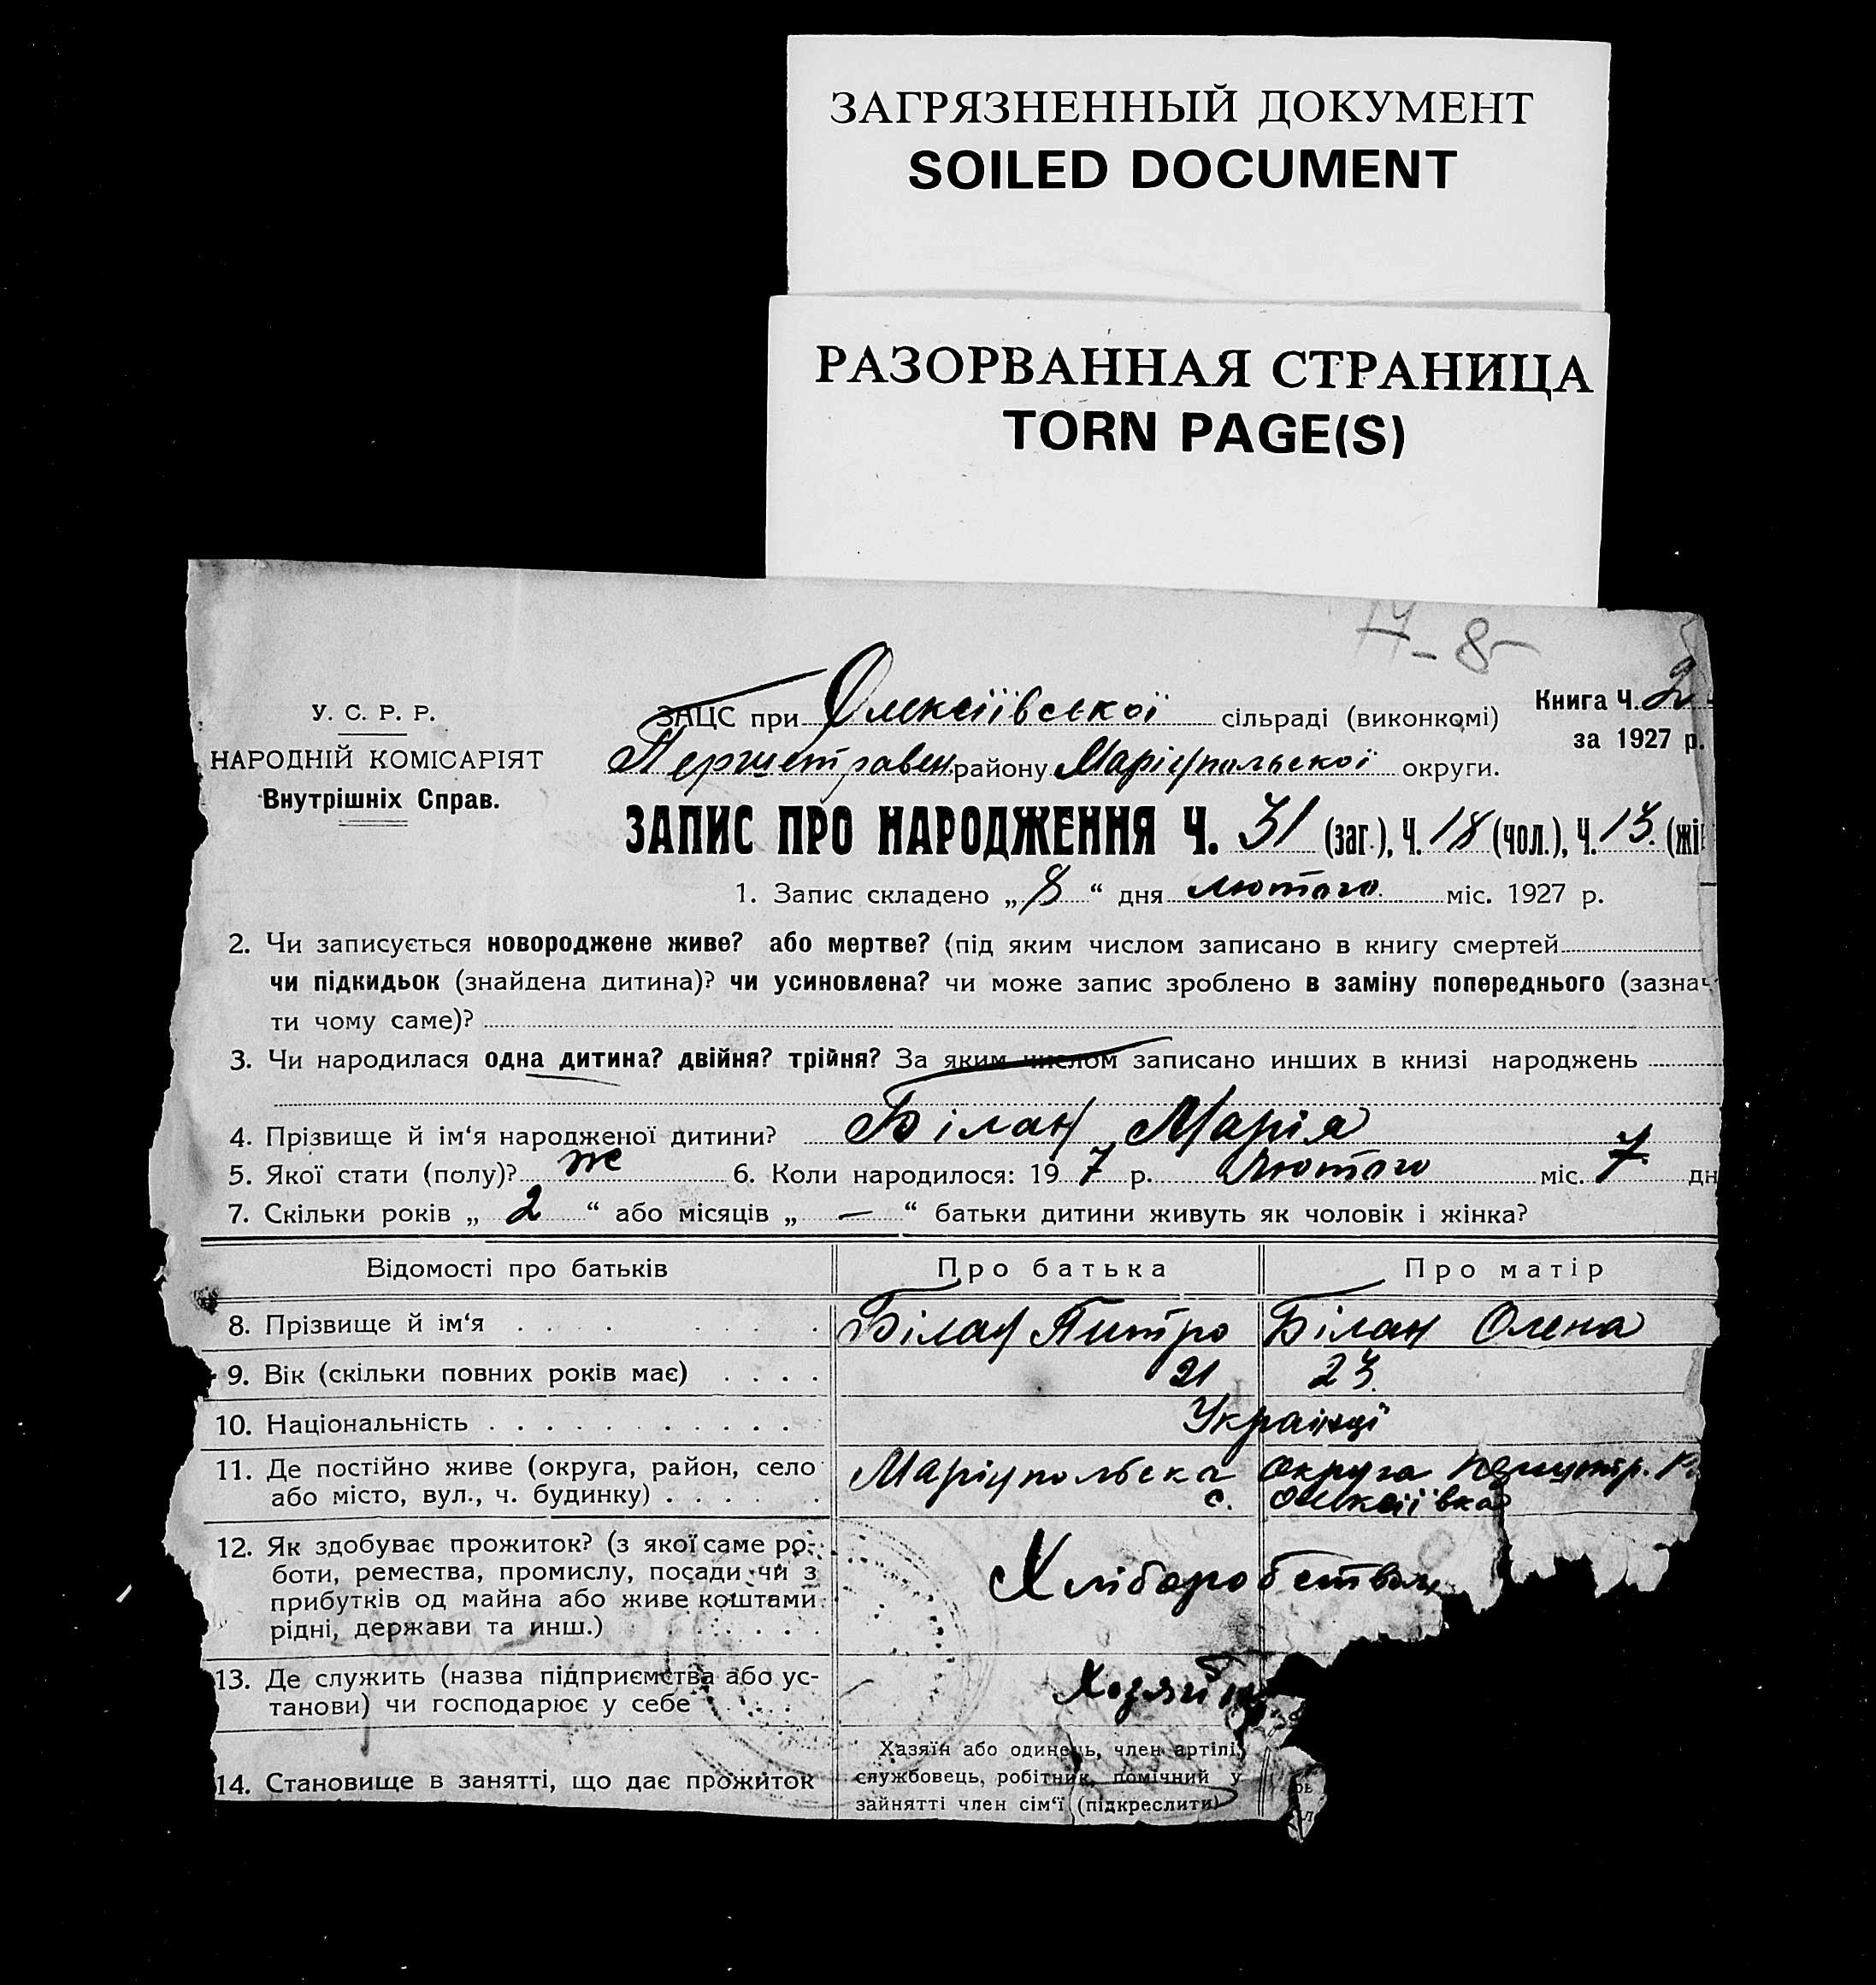 ЗАГРЯЗНЕННЫЙ ДОКУМЕНТ
SOILED DOCUMENT
РАЗОРВАННАЯ СТРАНИЦА
TORN PAGE(S)
8
У. С. Р. Р.
НАРОДНІЙ КОМІСАРІЯТ
Внутрішніх Справ.
ЗАЦС при Олексіївської сільраді (виконкомі)
Книга Ч. 2
за 1927 р.
району Маріупольскої округи.
ЗАПИС ПРО НАРОДЖЕННЯ Ч. 31 (заг.), Ч. 18 (чол.), Ч. 13. (жі
1. Запис складено „ 8 “ дня лютого міс. 1927 р.
2. Чи записується новороджене живе? або мертве? (під яким числом записано в книгу смертей
чи підкидьок (знайдена дитина)? чи усиновлена? чи може запис зроблено в заміну попереднього (зазнач
ти чому саме)?
3. Чи народилася одна дитина? двійня? трійня? За яким числом записано инших в книзі народжень
4. Прізвище й ім‘я народженої дитини? Білан Марія
5. Якої стати (полу)? же 6. Коли народилося: 19 7 р. Лютого міс. 7 дн
7. Скільки років „ 2 “ або місяців „ — “ батьки дитини живуть як чоловік і жінка?
Відомості про батьків Про батька Про матір
8. Прізвище й ім‘я . . . . . . . Білан Питро Білан Олена
9. Вік (скільки повних років має) . . . . 21 23.
10. Національність . . . . . . . . . . . Українці
11. Де постійно живе (округа, район, село Маріупольска округа
або місто, вул., ч. будинку) . . . . . с. Олексіївка
12. Як здобуває прожиток? (з якої саме ро-
боти, ремества, промислу, посади чи з
прибутків од майна або живе коштами
рідні, держави та инш.) . . . . . . .
13. Де служить (назва підприємства або ус-
танови) чи господарює у себе . . . .
Хазяїн або одинець, член артілі,
14. Становище в занятті, що дає прожиток службовець, робітник, помічний у
зайнятті член сім‘ї (підкреслити)